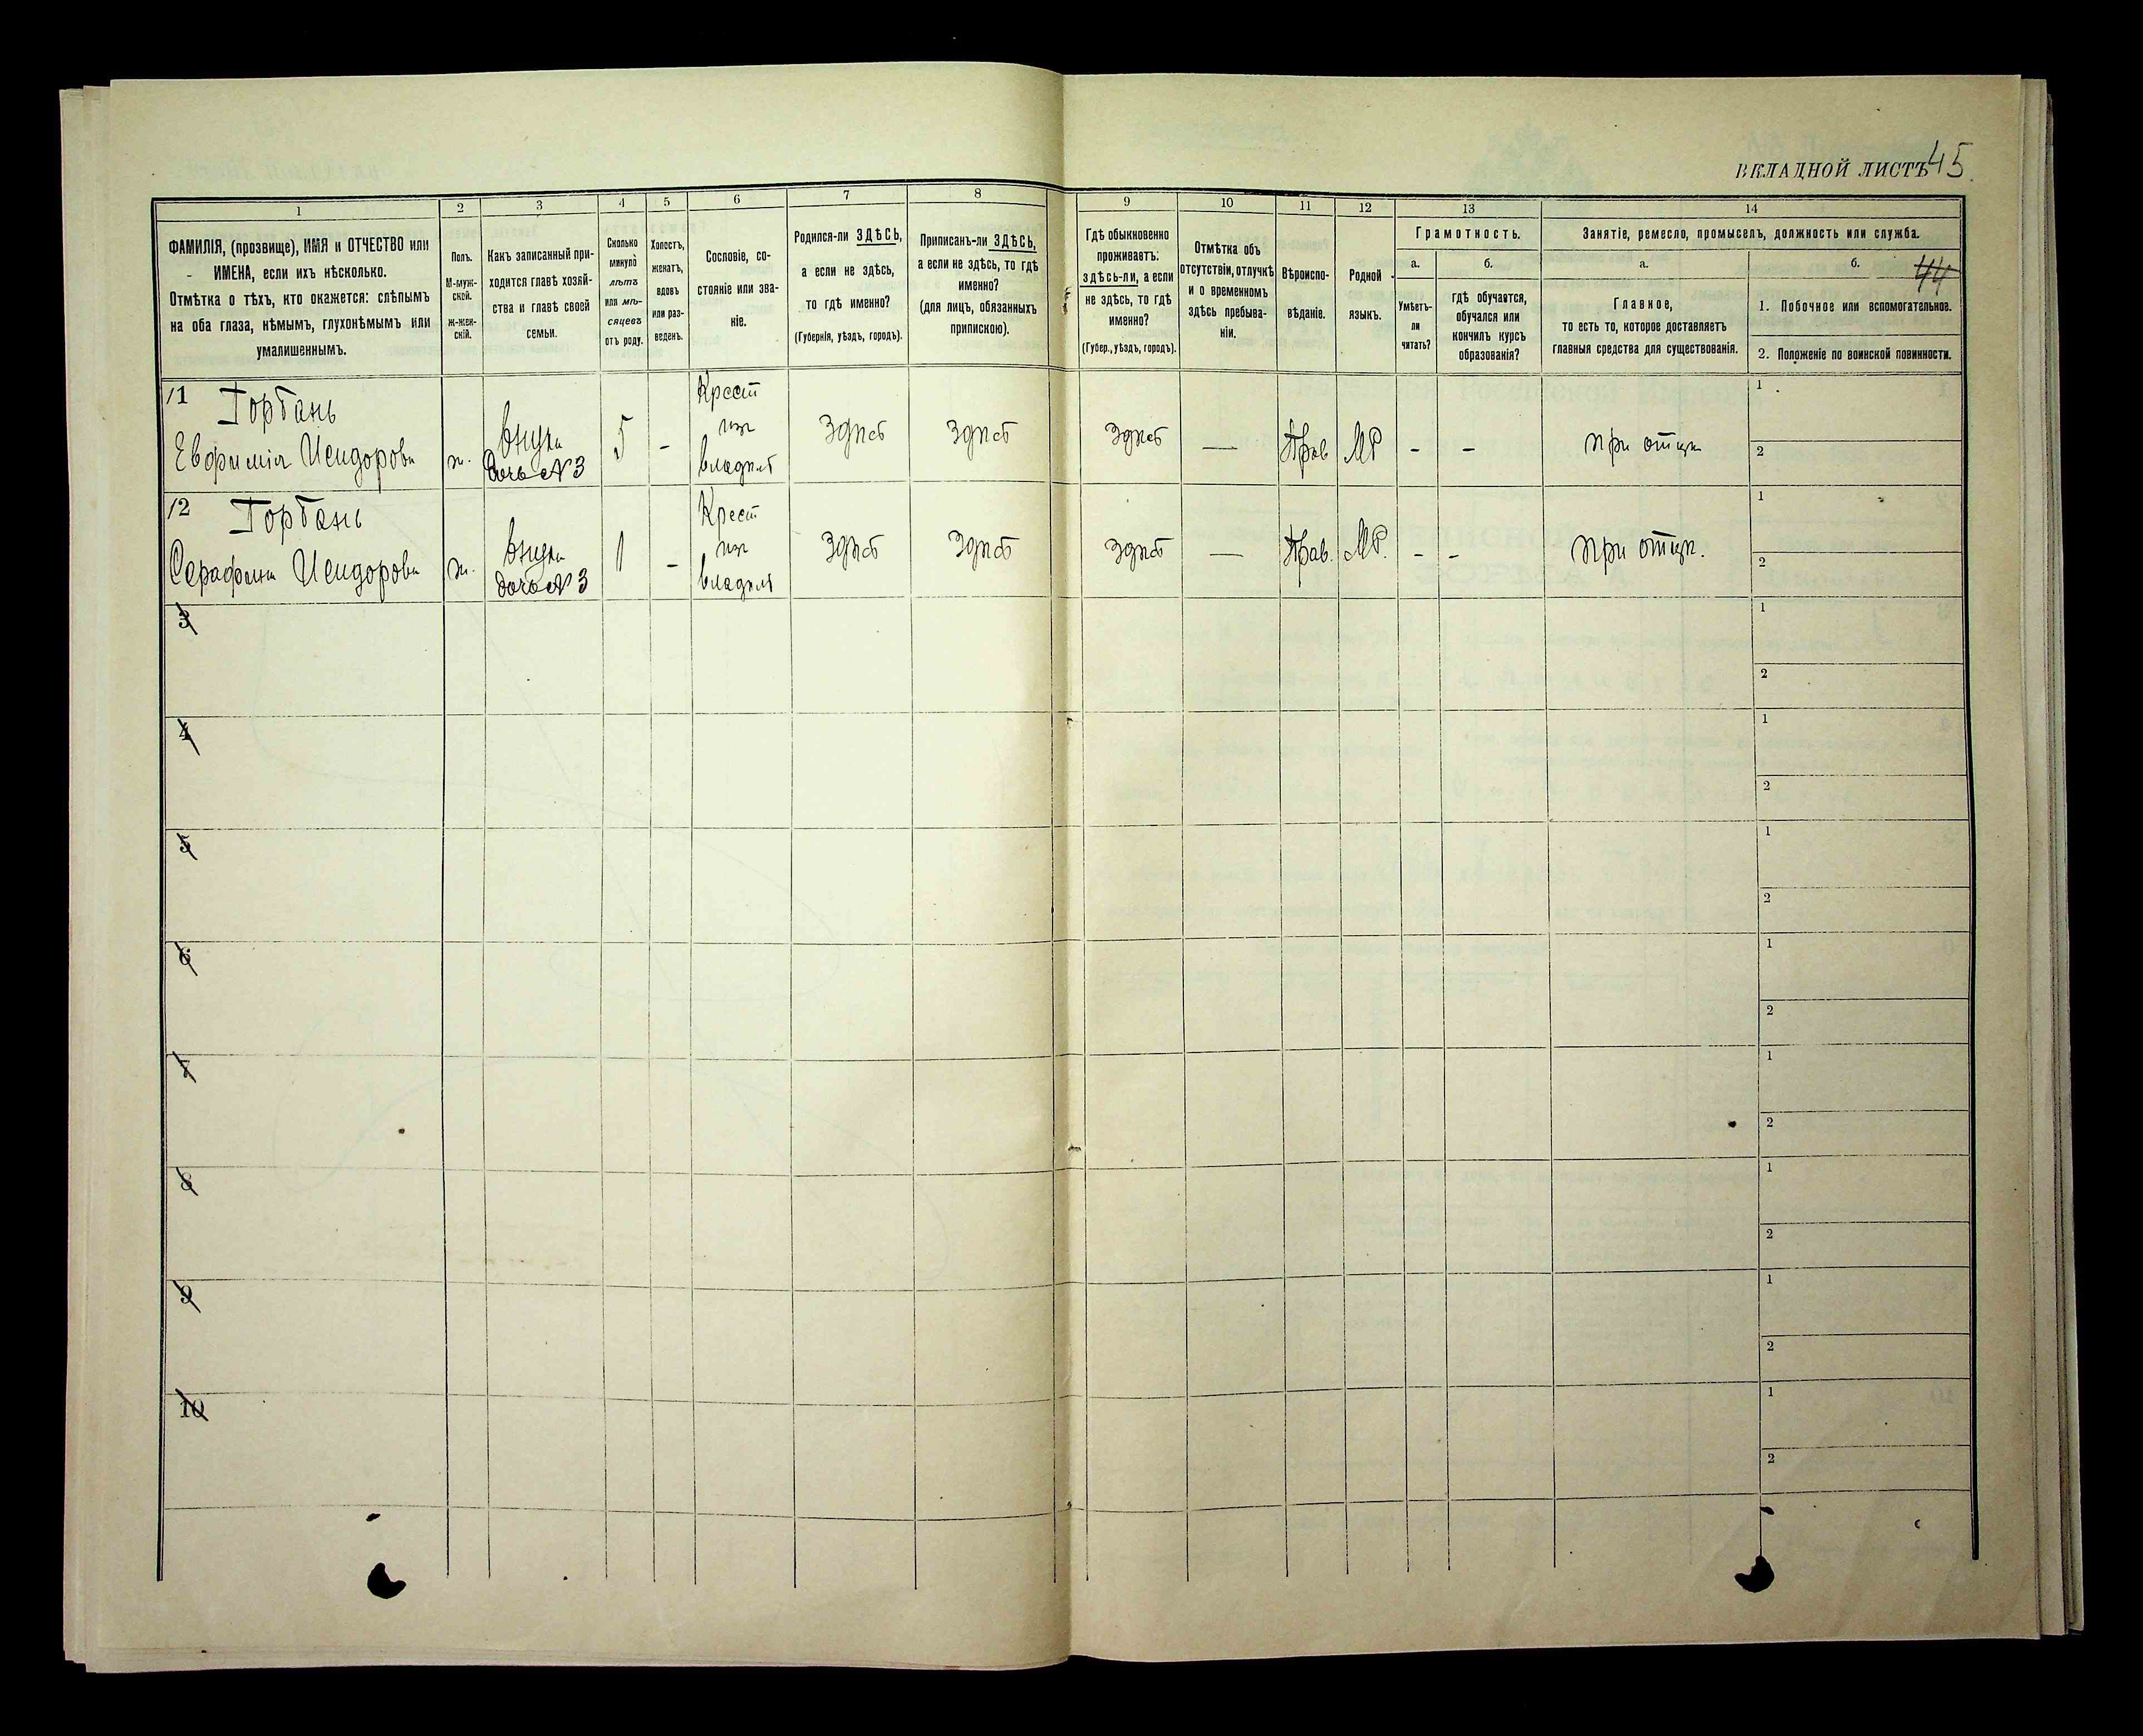 ВКЛАДНОЙ ЛИСТЪ 45
1
ФАМИЛІЯ, (прозвище), ИМЯ и ОТЧЕСТВО или
ИМЕНА, если ихъ нѣсколько.
Отмѣтка о тѣхъ, кто окажется: слѣпымъ
на оба глаза, нѣмымъ, глухонѣмымъ или
умалишеннымъ.
2
Полъ.
М-муж-
ской.
ж-жен-
скій.
3
Какъ записанный при-
ходится главѣ хозяй-
ства и главѣ своей
семьи.
4
Сколько
минуло
лѣтъ
или мѣ-
сяцевъ
отъ роду.
5
Холостъ,
женатъ,
вдовъ
или раз-
веденъ.
6
Сословіе, со-
стояніе или зва-
ніе.
7
Родился-ли ЗДѢСЬ,
а если не здѣсь,
то гдѣ именно?
(Губернія, уѣздъ, городъ).
8
Приписанъ-ли ЗДѢСЬ,
а если не здѣсь, то гдѣ
именно?
(для лицъ, обязанныхъ
припискою).
9
Гдѣ обыкновенно
проживаетъ:
здѣсь-ли, а если
не здѣсь, то гдѣ
именно?
(Губер., уѣздъ, городъ).
10
Отмѣтка объ
отсутствіи, отлучкѣ
и о временномъ
здѣсь пребыва-
ніи.
11
Вѣроиспо-
вѣданіе.
12
Родной
языкъ.
13
Грамотность.
а.
Умѣетъ-
ли
читать?
б.
гдѣ обучается,
обучался или
кончилъ курсъ
образованія?
14
Занятіе, ремесло, промыселъ, должность или служба.
а.
Главное,
то есть то, которое доставляетъ
главныя средства для существованія.
б.
44
1. Побочное или вспомогательное.
2. Положеніе по воинской повинности.
11 Горбань
Евфимія Исидорова
ж.
внука
дочь №3
5
-
Крест
изъ
владѣл
здѣсь
здѣсь
здѣсь
—
Прав
МР
-
-
при отцѣ
1
2
12 Горбань
Серафима Исидорова
ж.
внука
дочь №3
1
-
Крест
изъ
владѣл
здѣсь
здѣсь
здѣсь
—
Прав.
МР.
-
-
при отцѣ.
1
2
3
1
2
4
1
2
5
1
2
6
1
2
7
1
2
8
1
2
9
1
2
10
1
2